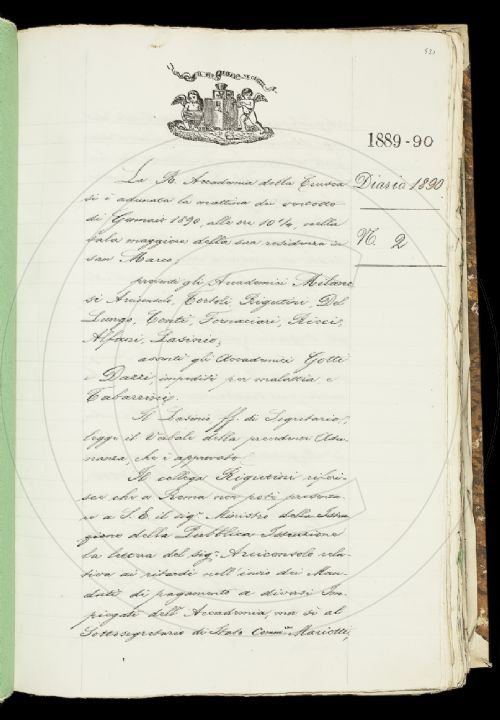 531
1889-90
Diario 1890
N. 2
La R. Accademia della Crusca
si è adunata la mattina de
di Gennaio 1890, alle ore 10 ¼, nella
sala maggiore della sua residenza in
san Marco;
presenti gli Accademici Milane
si Arciconsolo, Tortoli, Rigutini, Del
Lungo, Conti, Fornaciari, Ricci,
Alfani, Lasinio;
assenti gli Accademici Gotti
e Dazzi, impediti per malattia e
Tabarrini.
Il Lasinio ff. di Segretario,
legge il Verbale della precedente Adu-
nanza, che è approvato.
Il collega Rigutini riferi-
sce che a Roma non poté presenta-
re a S. E. il sig. Ministro della
della Pubblica Istruzione
la lettera del sig. Arciconsolo rela-
tiva ai ritardi nell'invio dei Man-
dati di pagamento a diversi Im-
piegati dell'Accademia, ma sì al
Sottosegretario di Stato Comm. Mariotti,